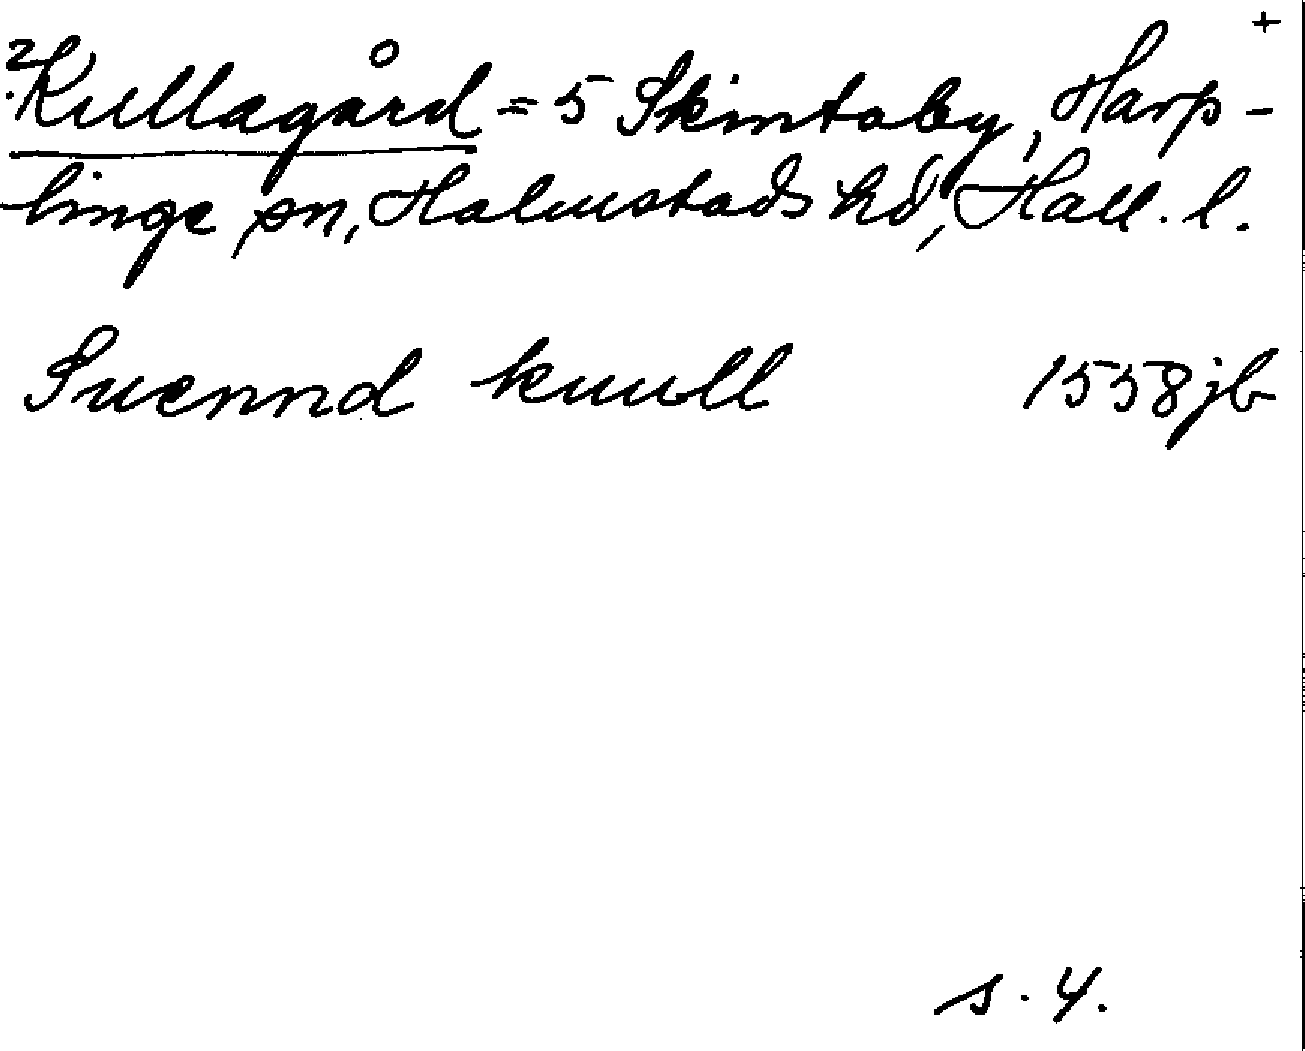 +
2. Kullagård = 5 Skintaby, Harp-
linge sn, Halmstads hd, Hall. l.
Suennd kuull 1558 jb
s. 4.